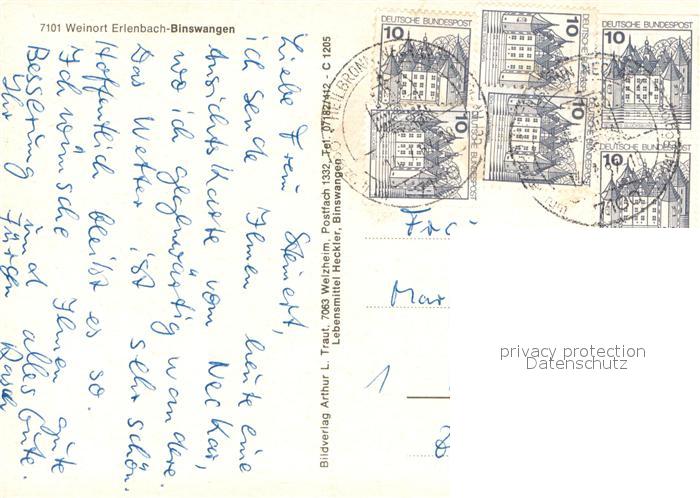 7101 Weinort Erlenbach-Binswangen
Liebe Frau Steinert,
ich sende Ihnen heute eine
Ansichtskarte vom Neckar,
wo ich gegenwärtig wandere.
Das Wetter ist sehr schön.
Hoffentlich bleibt es so.
Ich wünsche Ihnen gute
Besserung und alles Gute.
Ihr Jürgen
Bildverlag Arthur L. Traut, 7063 Welzheim, Postfach 1332, Tel. 07182/412 - C 1205
Lebensmittel Heckler, Binswangen
DEUTSCHE BUNDESPOST
10
10
DEUTSCHE BUNDESPOST
DEUTSCHE BUNDESPOST
10
10
DEUTSCHE BUNDESPOST
10
DEUTSCHE BUNDESPOST
DEUTSCHE BUNDESPOST
10
HEILBRONN
7100
Mar
1
privacy protection
Datenschutz